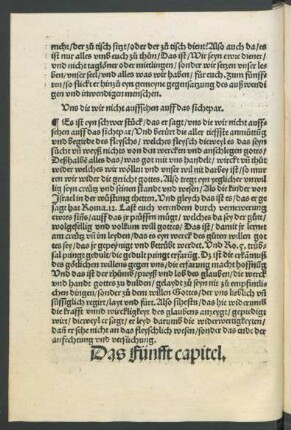 mehr/der zů tisch sitzt/oder der zů tisch dient? Also auch da/es
ist nur alles vmb euch zů thůn/Das ist/Wir seyn ewre diener/
vnd nicht taglöner oder mietlingen/sonder wir setzen vnser le-
ben/vnser seel/vnd alles was wir haben/für euch. Zum fünff-
ten/so flickt er hinzů eyn gemeyne gegensatzung des außwendi
gen vnd inwendigen menschen.
Vns die wir nicht auffsehen auff das sichtpar.
¶ Es ist eyn schwer stück/das er sagt/vns die wir nicht auff-
sehen auff das sichtpar/Vnd berürt die aller tieffste anmůtūg
vnd begirde des fleyschs/welches fleysch dieweyl es das seyn
sůcht vn̄ weyß nichts von den wercken vnd anschlegen gottes/
Deßhalbē alles das/was got mit vns handelt/wirckt vn̄ thůt
wider welches wir wöllen vnd vnser wil nit darbey ist/so mur
ren wir wider die gericht gottes. Also tregt eyn yeglicher vnwil
lig seyn creütz vnd seinen standt vnd wesen/Als die kinder von
Israel in der wůstung theten. Vnd gleych das ist es/das er ge
sagt hat Roma.12. Laßt euch verendern durch vernewerung
ewers siñs/auff das jr prüffen mügt/welches da sey der gůt/
wolgefellig vnd volkum will gottes/Das ist/damit jr lernt
am creütz vn̄ im leyden/das es eyn werck des gůten willen got
tes sey/das jr gepeynigt vnd betrübt werdet. Vnd Ro.5. trüb-
sal pringt gedult/die gedult pringt erfarūg. Dz ist die erkātnuß
des götlichen willens gegen vns/die erfarung macht hoffnūg
Vnd das ist der rhům/preyß vnd lob des glauben/die werck
vnd handt gottes zu dulden/gelaydt zů seyn nit zu empfindtli-
chen dingen/sonder zu dem willen Gottes/der vns lieblich vn̄
süssigklich regirt/layt vnd fürt. Also sihestu/das hie widerumb
die krafft vnnd würckligkeyt des glaubens anzeygt/gepůdigt
wirt/dieweyl er sagt/er leyd darumb die widerwertigkeyten/
dañ er sehe nicht an das fleyschlich wesen/sonder das ende der
anfechtung vnd versůchung.
Das Fünfft capitel.